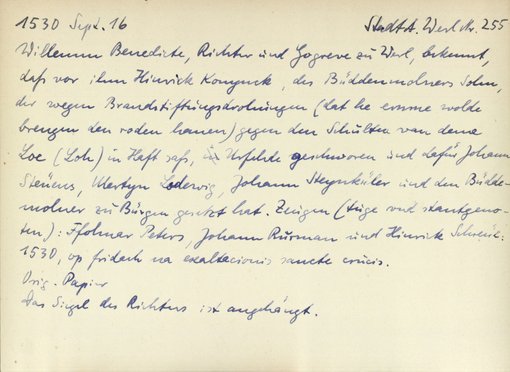 1530 Sept. 16 Stadt A. Werl Nr. 255
Willemm Benedicte, Richter und Gogreve zu Werl, bekennt,
daß vor ihm Hinrick Komynck, des Büddenmolners Sohn,
der wegen Brandstiftungsdrohungen (dat he emme wolde
brengen den roden hanen) gegen den Schulten van deme
Loe (Loh) in Haft saß, Urfehde geschworen und dafür Johann
Stevens, Mertyn Lodewig, Johann Steynküler und den Büdde-
molner zu Bürgen gesetzt hat. Zeugen (tuge und stantgeno-
ten): Ffolmar Peters, Johann Rurman und Hinrick
1530, op fridach na exaltacionis sancte crucis.
Orig. Papier
Das Siegel des Richters ist angehängt.